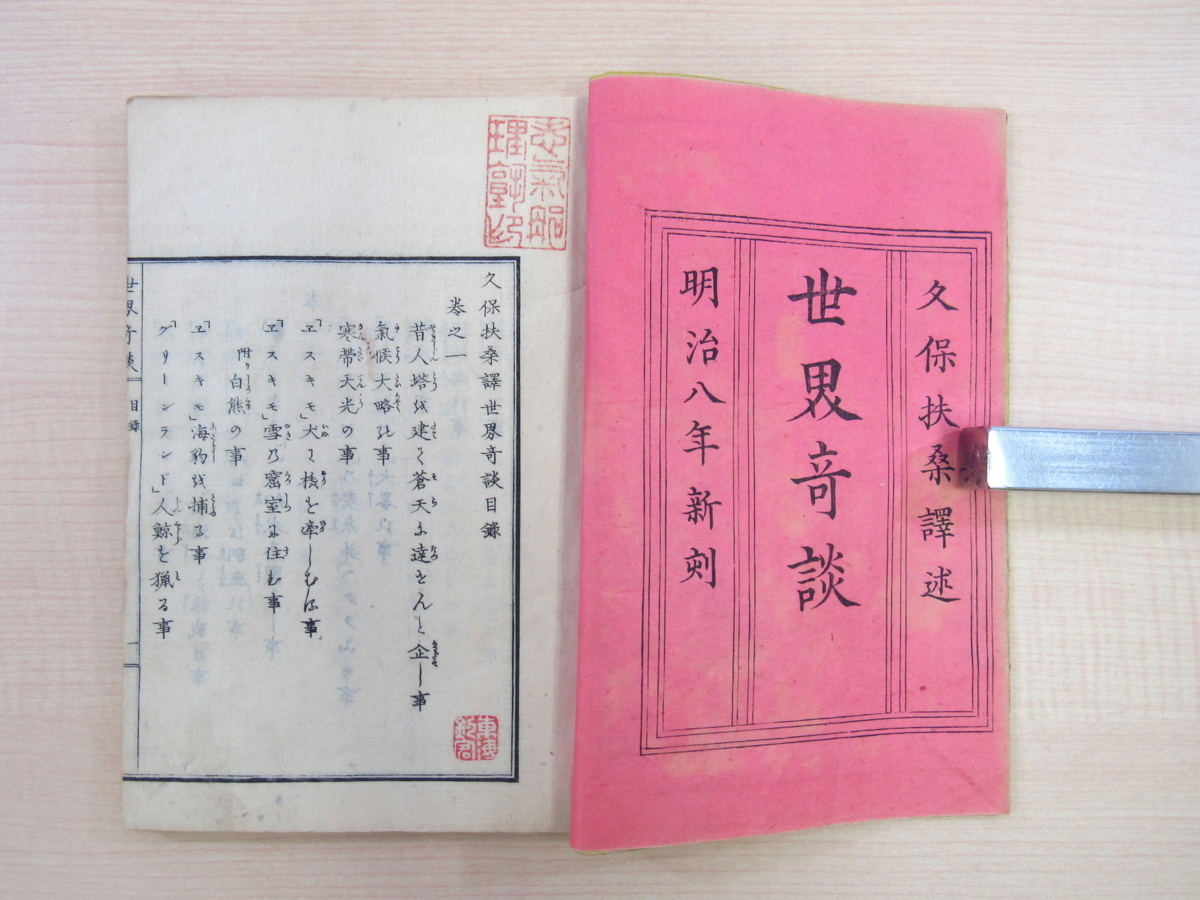 久保扶桑譯述
世界奇談
明治八年新刻
久保扶桑譯世界奇談目錄
卷之一
昔人塔を建て蒼天に達せんと企し事
氣候大略の事
寒帶天光の事
「ヱスキモ」犬に橇を牽しむる事
「ヱスキモ」雪の窖室に住む事
附り白熊の事
「ヱスキモ」海豹を捕る事
「グリーンランド」人鯨を猟る事
世界奇談 目錄 一